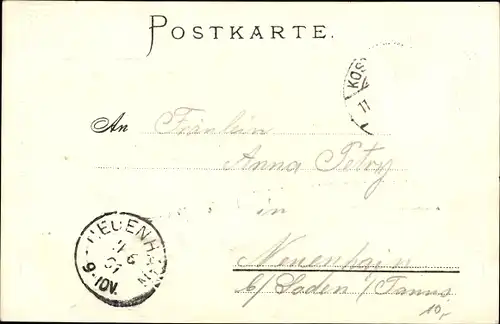 POSTKARTE.
KOS
11
An Fräulein
Anna Petry
in
Neuenhain
b/ Soden i/Taunus
NEUENHAIN
11 6
01
9-10V.
10,-